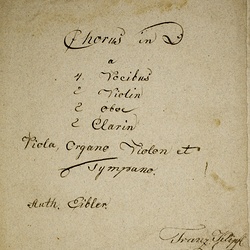 Chorus in D
a
4. Vocibus
2 Violin
2 Oboe
2 Clarin
Viola, Organo Violon et
Tympano.
Auth. Eibler.
Franz